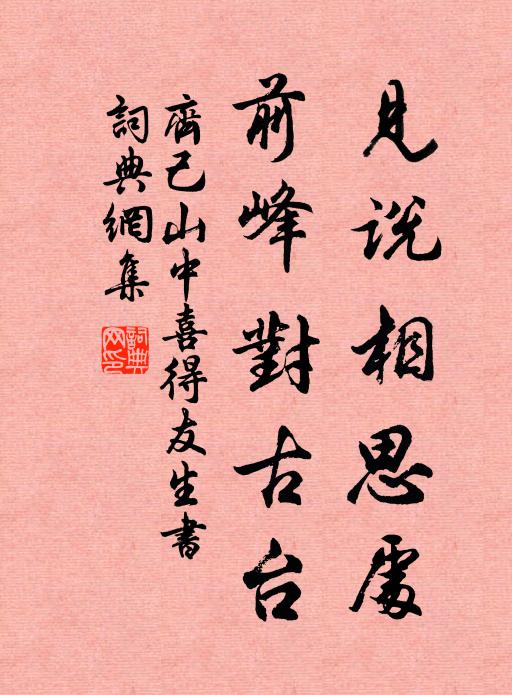 見説相思處
前峰對古台
齊己山中喜得友生書
詞典網集
詞典
网印